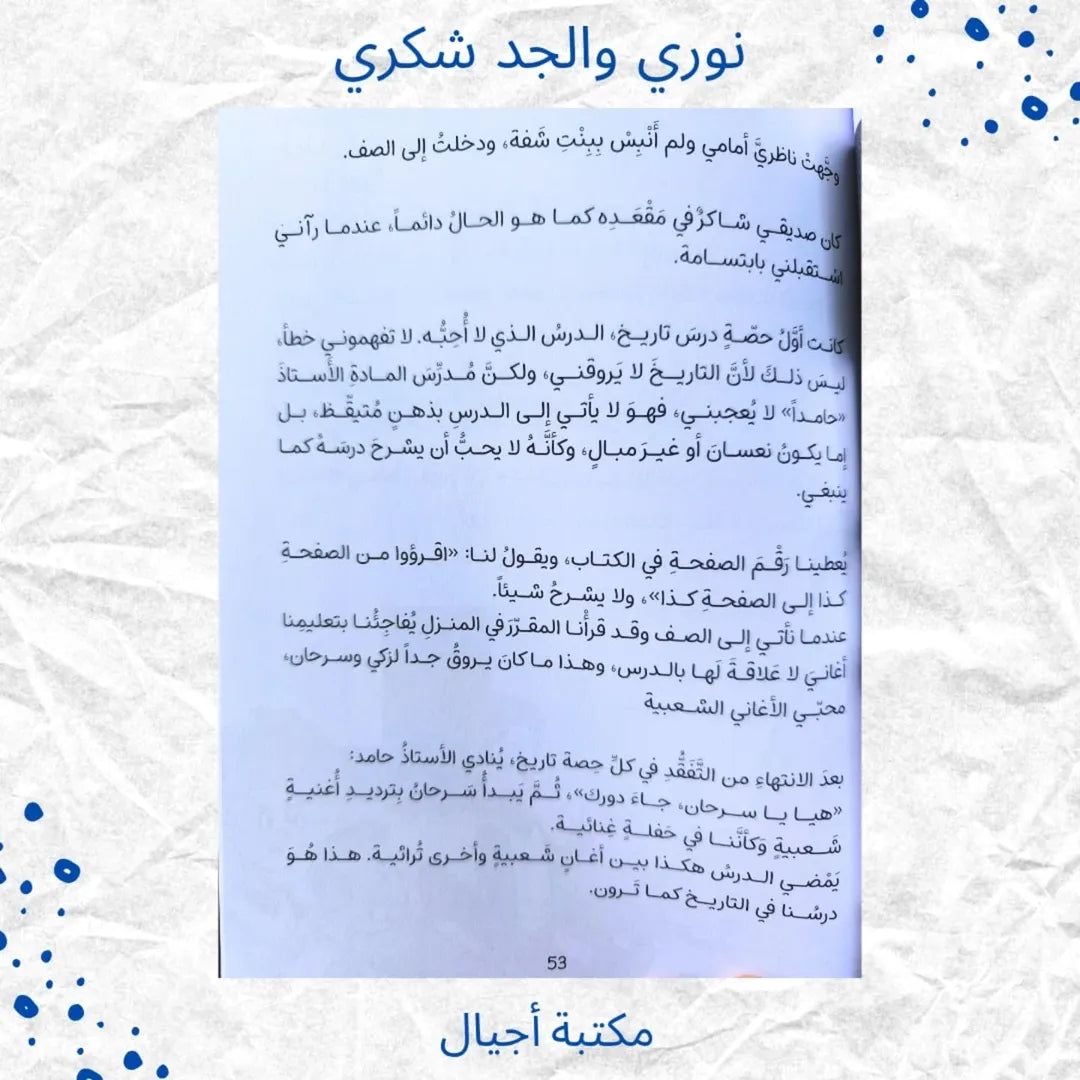 نوري والجد شكري
وجَّهتُ ناظريَّ أمامي ولم أَنْبِسْ بِبِنْتِ شَفة، ودخلتُ إلى الصف.
كان صديقي شاكرٌ في مَقْعَدِه كما هو الحالُ دائماً، عندما رآني
استقبلني بابتسامة.
كانت أوَّلُ حصّةٍ درسَ تاريخ، الدرسُ الذي لا أُحِبُّه. لا تفهموني خطأ،
ليسَ ذلكَ لأنَّ التاريخَ لا يَروقني، ولكنَّ مُدرِّسَ المادةِ الأستاذَ
«حامداً» لا يُعجبني، فهوَ لا يأتي إلى الدرسِ بذهنٍ مُتيقّظ، بل
إما يكونُ نعسانَ أو غيرَ مبالٍ، وكأنَّهُ لا يحبُّ أن يشرحَ درسَهُ كما
ينبغي.
يُعطينا رَقْمَ الصفحةِ في الكتاب، ويقولُ لنا: «اقرؤوا من الصفحةِ
كذا إلى الصفحةِ كذا»، ولا يشرحُ شيئاً.
عندما نأتي إلى الصف وقد قرأْنا المقرّرَ في المنزلِ يُفاجِئُنا بتعليمِنا
أغانيَ لا عَلاقةَ لَها بالدرس، وهذا ما كانَ يروقُ جداً لزكي وسرحان،
محبّي الأغاني الشعبية
بعدَ الانتهاءِ من التَّفَقُّدِ في كلِّ حِصة تاريخ، يُنادي الأستاذُ حامد:
«هيا يا سرحان، جاءَ دورك»، ثُمَّ يَبدأُ سَرحانُ بِترديدِ أُغنيةٍ
شَعبيةٍ وَكأنَّنا في حَفلةٍ غِنائية.
يَمْضي الدرسُ هكذا بين أغانٍ شَعبيةٍ وأخرى تُراثية. هذا هُوَ
درسُنا في التاريخ كما تَرون.
53
مكتبة أجيال